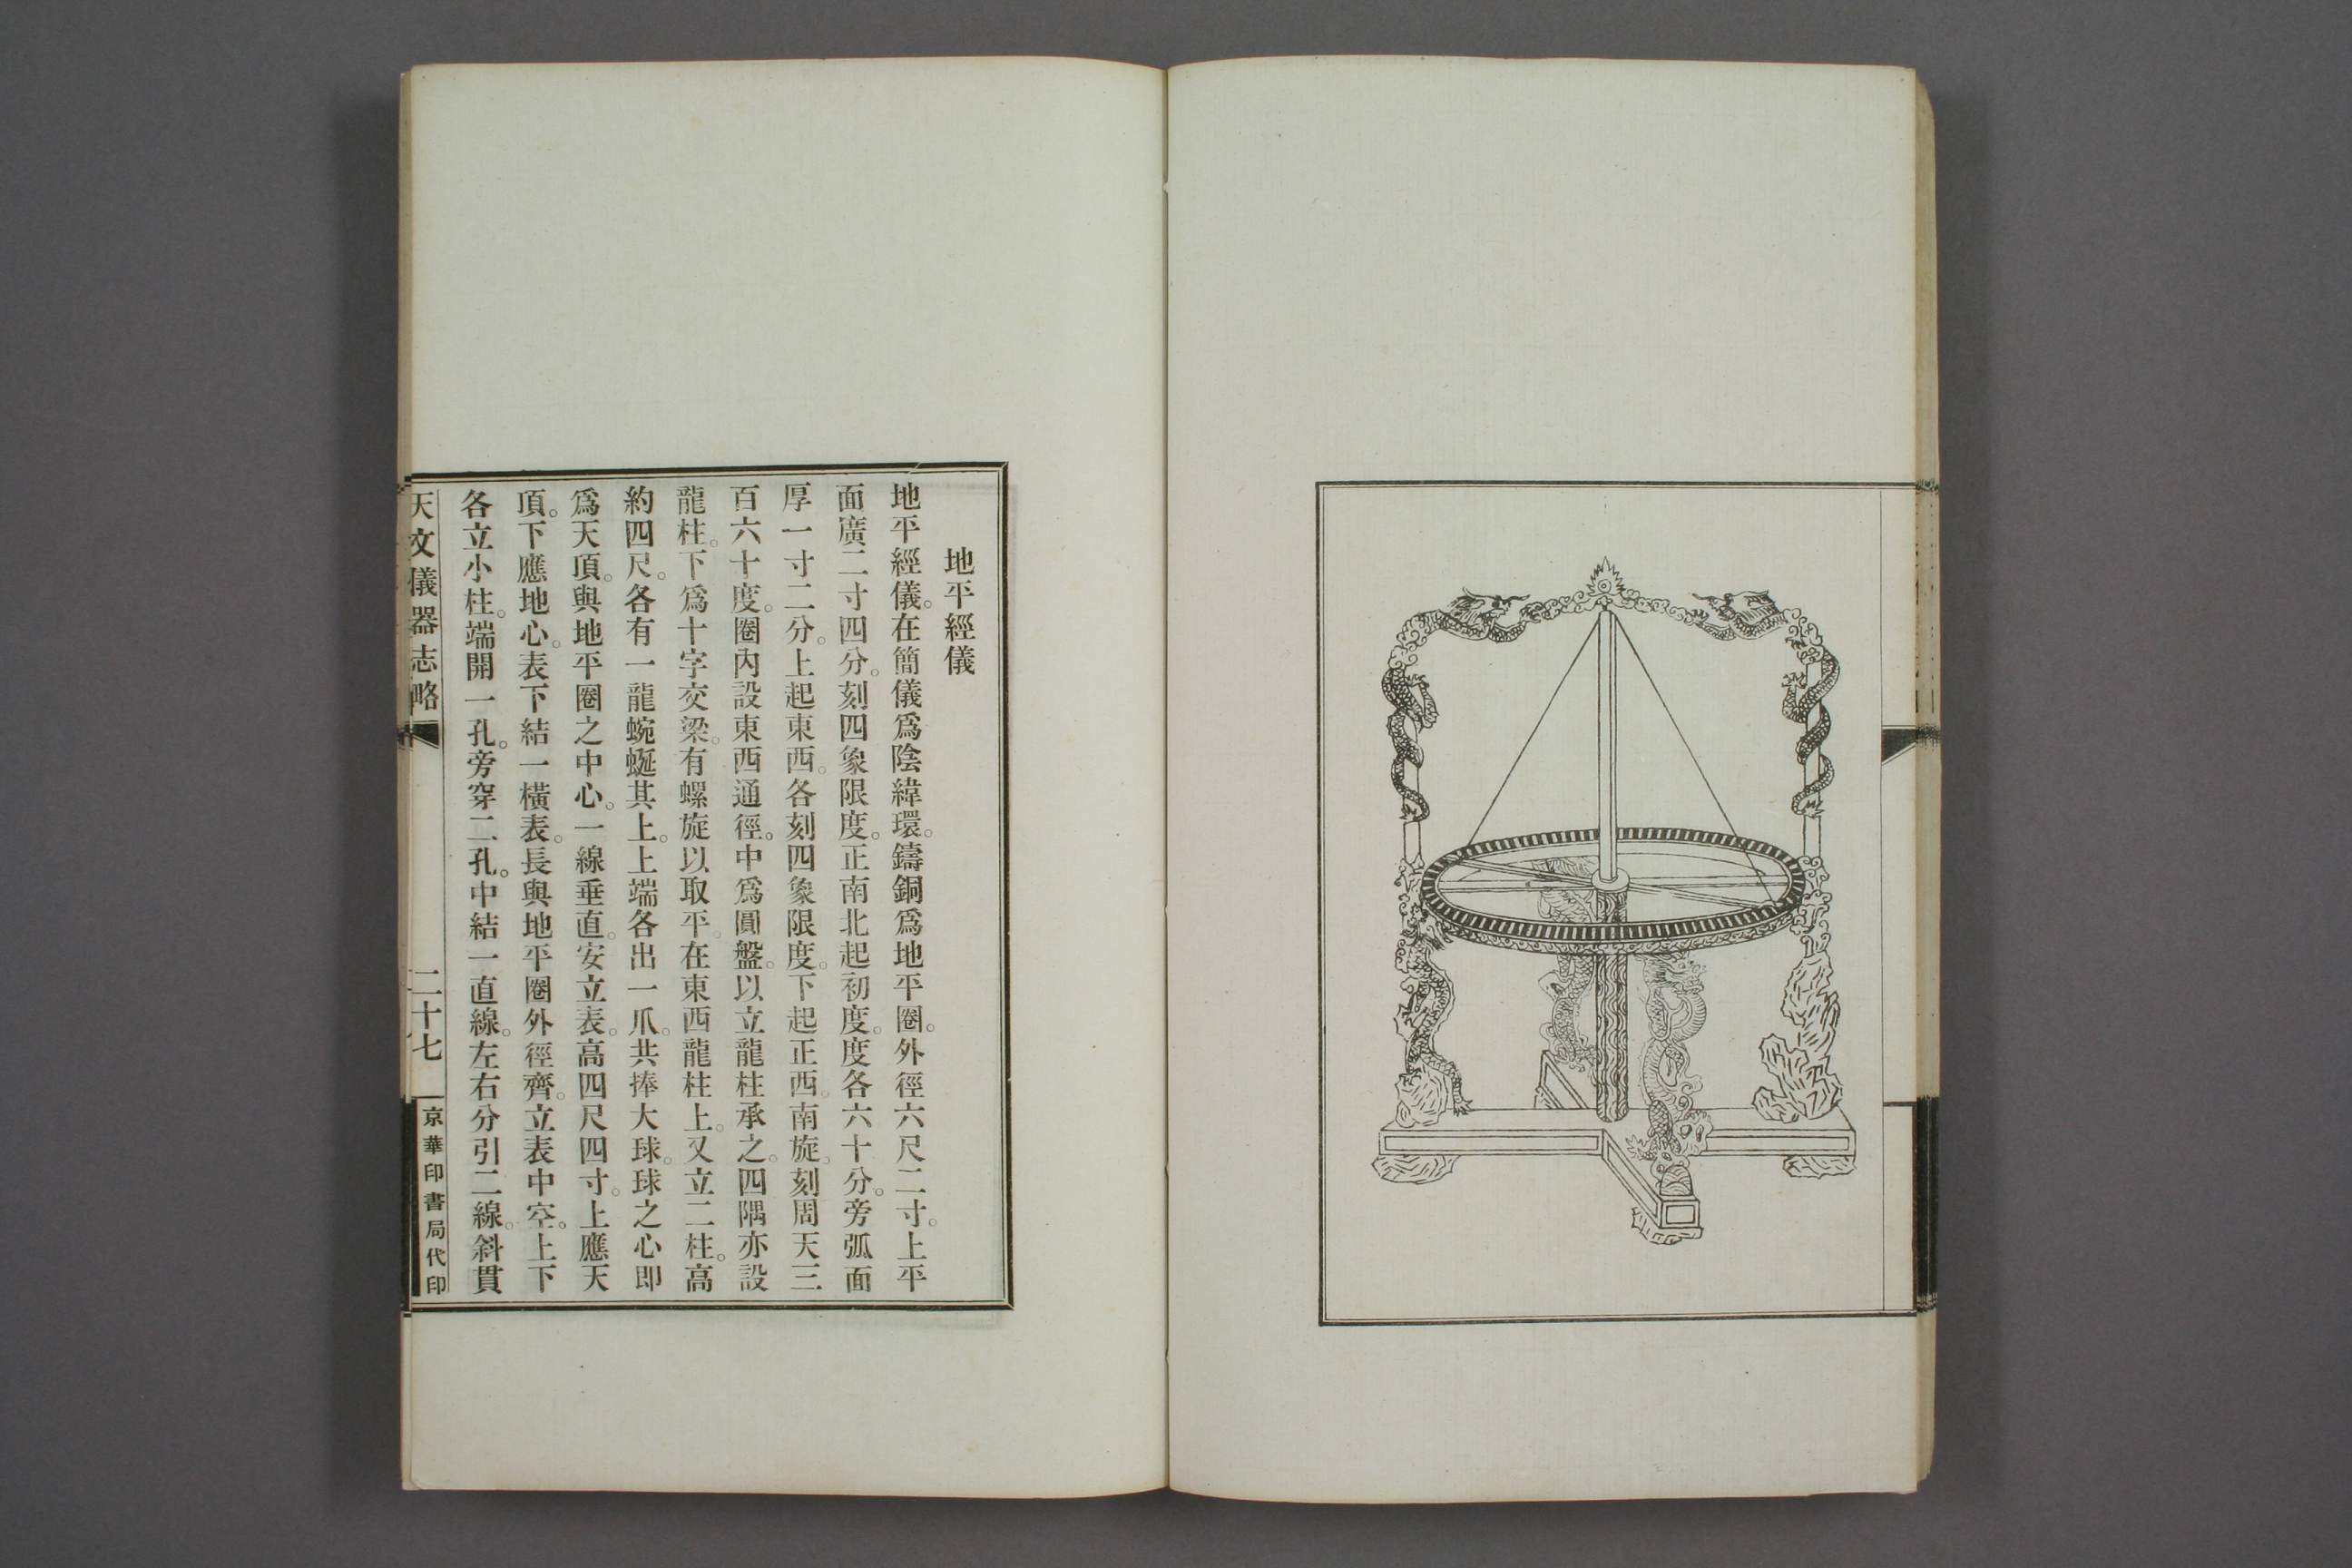 地平經儀
地平經儀。在簡儀爲陰緯環。鑄銅爲地平圈。外徑六尺二寸。上平
面廣二寸四分。刻四象限度。正南北起初度。度各六十分。旁弧面
厚一寸二分。上起東西。各刻四象限度。下起正西。南旋。刻周天三
百六十度。圈內設東西通徑。中爲圓盤。以立龍柱承之。四隅亦設
龍柱。下爲十字交梁。有螺旋以取平。在東西龍柱上。又立二柱。高
約四尺。各有一龍蜿蜒其上。上端各出一爪。共捧大球。球之心即
爲天頂。與地平圈之中心。一線垂直。安立表。高四尺四寸。上應天
頂。下應地心。表下結一橫表。長與地平圈外徑齊。立表中空。上下
各立小柱。端開一孔。旁穿二孔。中結一直線。左右分引二線。斜貫
天文儀器志略
二十七
京華印書局代印